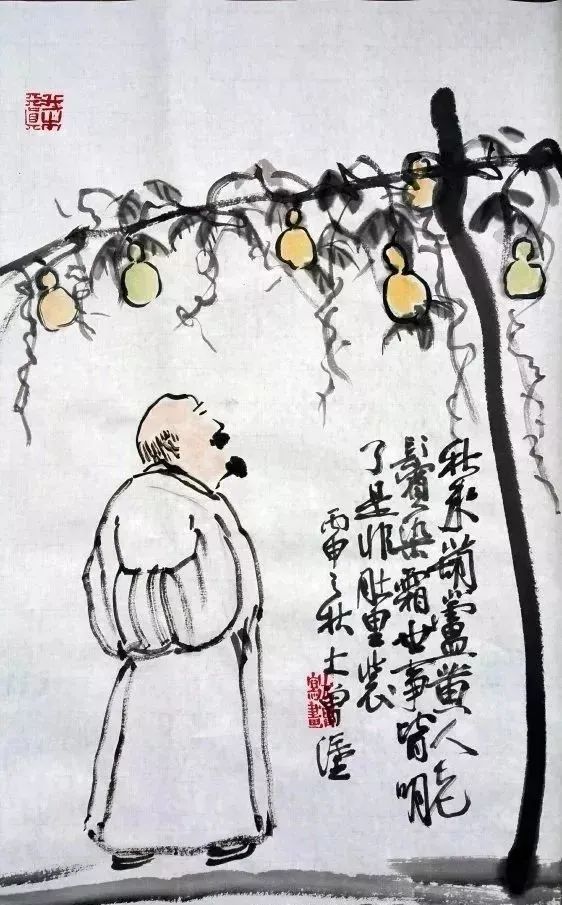 秋来葫蘆黄人老
鬢染霜世事皆明
了是非肚里装
丙申之秋
寫畫